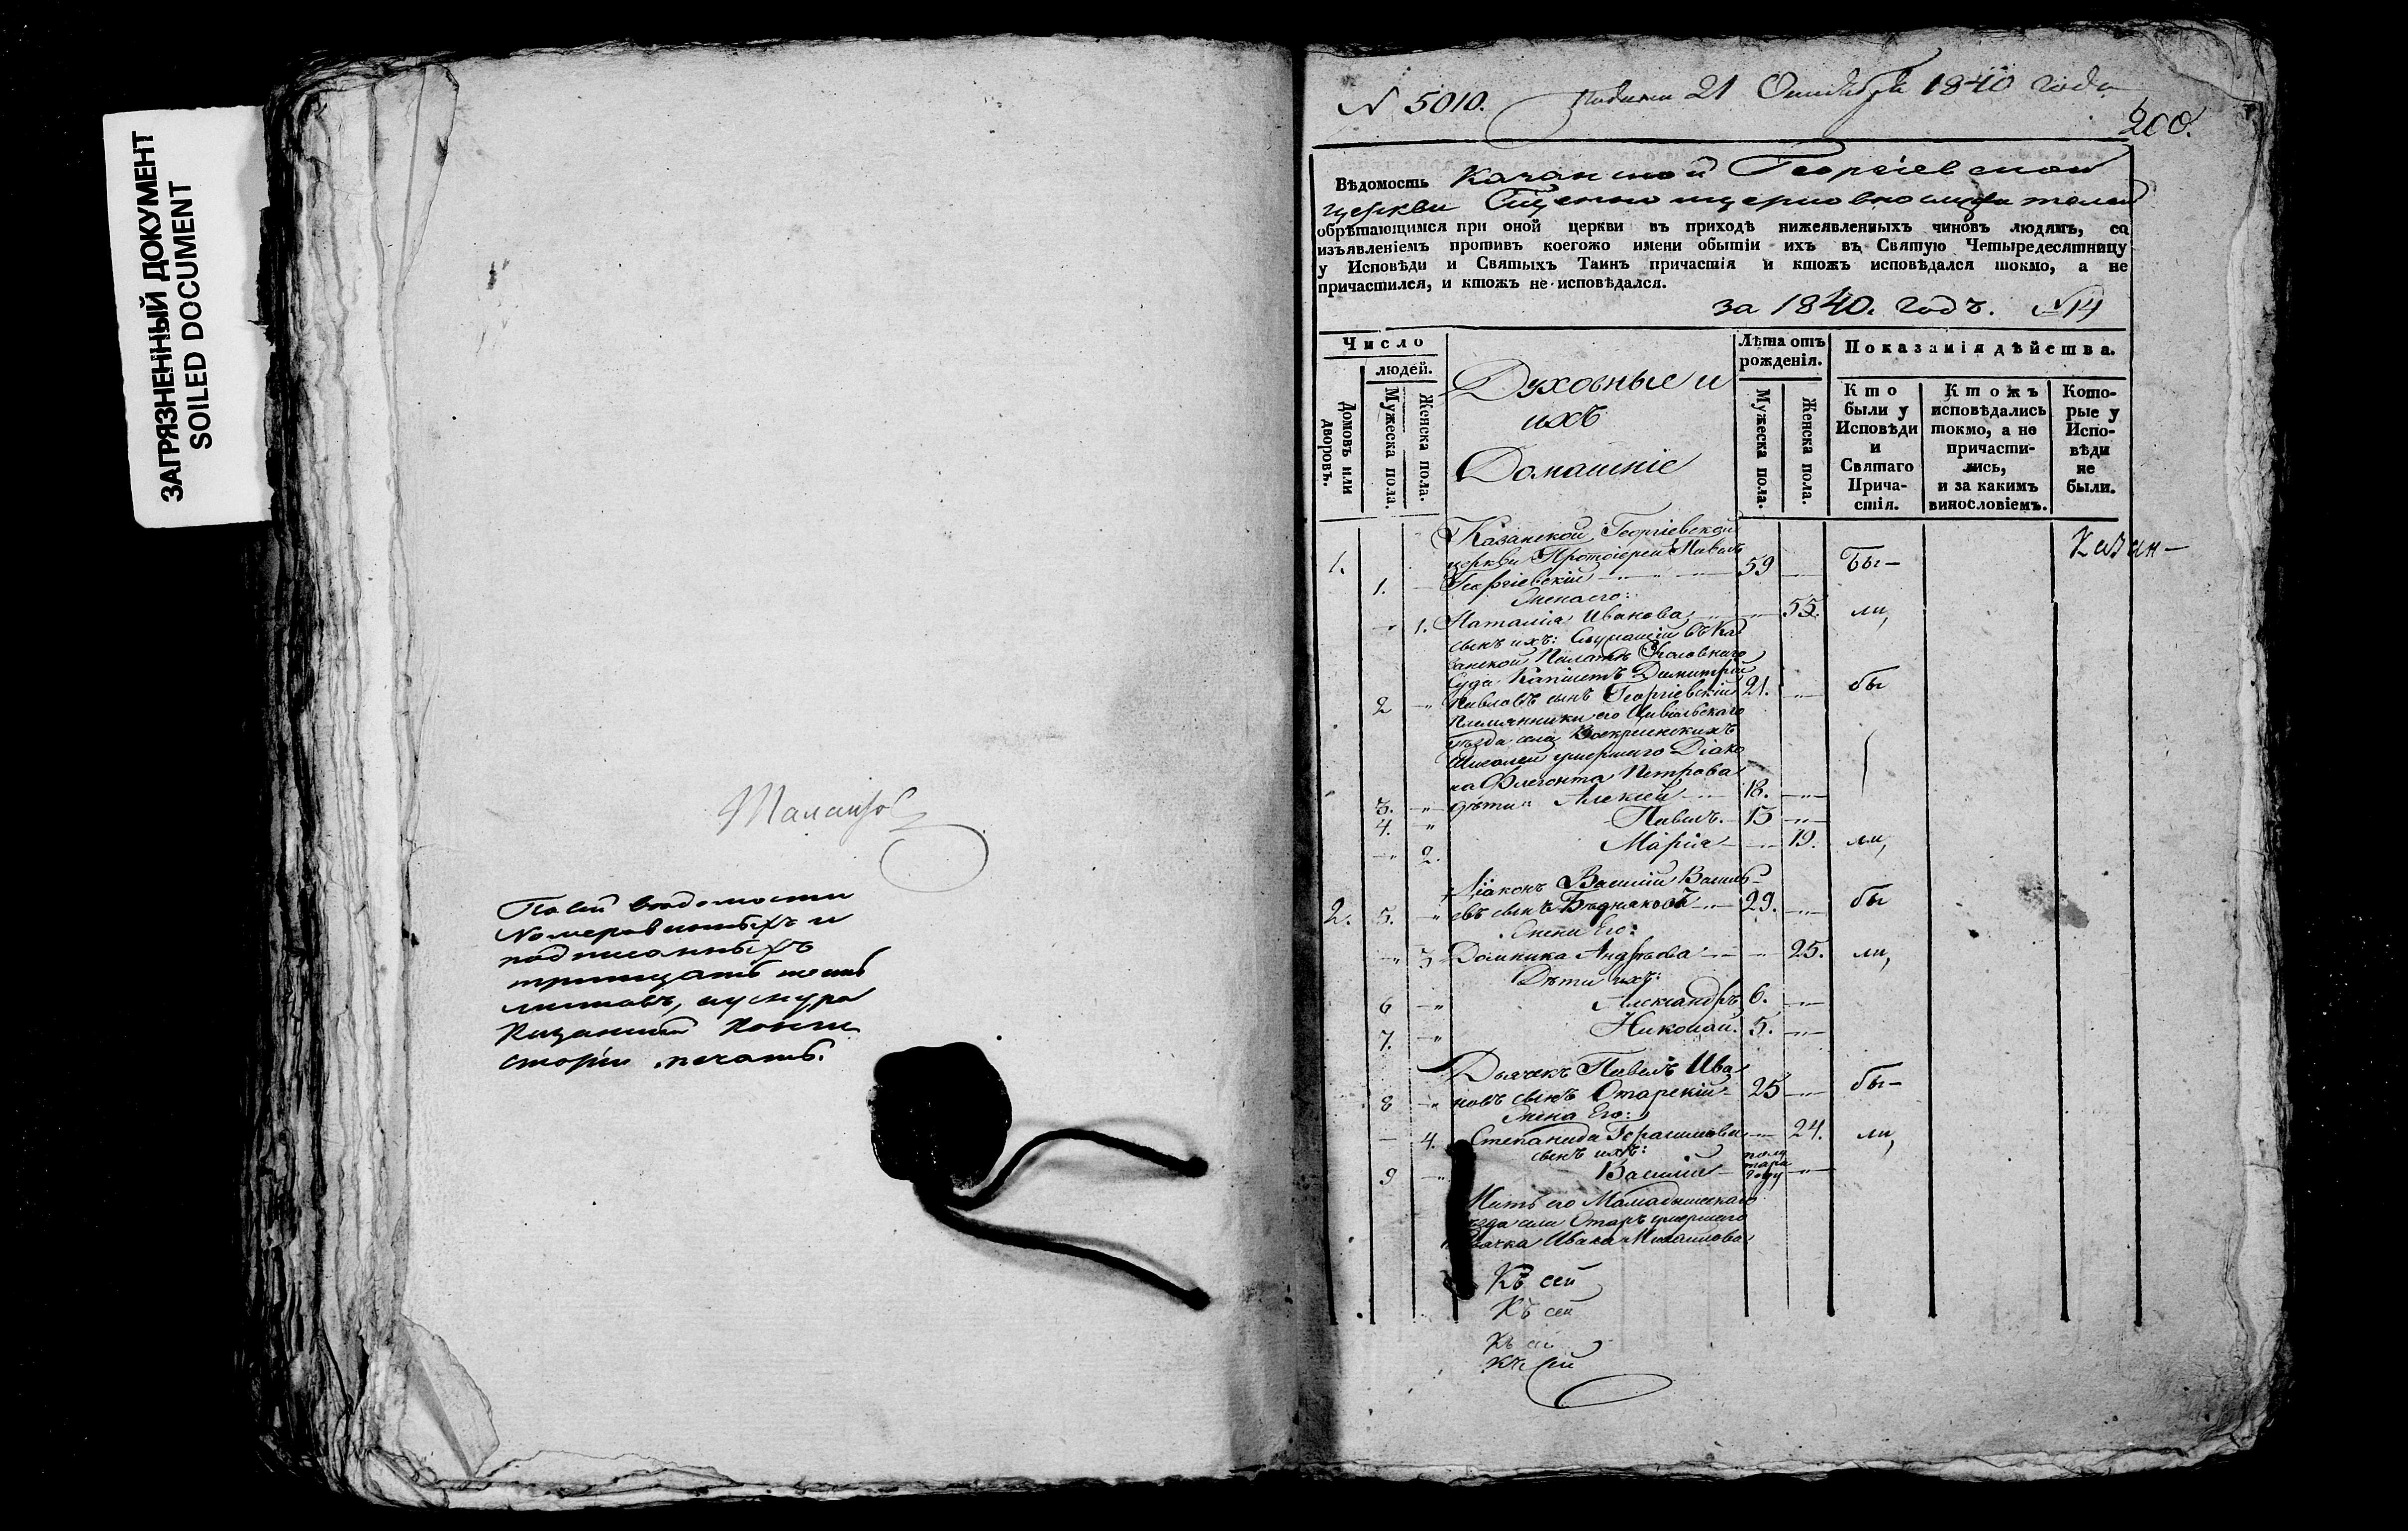 ЗАГРЯЗНЕННЫЙ ДОКУМЕНТ
SOILED DOCUMENT
По сей ведомости
Номерованныхъ и
подписанныхъ
тритцать
листовъ, на шнуре
Казанской Конси
сторіи печать.
N 5010. 21 Октября 1840 года
200.
Вѣдомость Казанской Георгіевской
церкви Священноцерковнослужителей
обрѣтающимся при оной церкви въ приходѣ нижеявленныхъ чиновъ людямъ, со
изъявленіемъ противъ коегожо имени обытіи ихъ въ Святую Четыредесятницу
у Исповѣди и Святыхъ Таинъ причастія и ктожъ исповѣдался токмо, а не
причастился, и ктожъ не исповѣдался.
за 1840. годъ. №14
Число
людей.
Домовъ или дворовъ.
Мужеска пола.
Женска пола.
Духовные и
ихъ
Домашніе
Лѣта отъ
рожденія.
Мужеска пола.
Женска пола.
Показанія дѣйства.
Кто
были у
Исповѣди
и
Святаго
Прича-
стія.
Ктожъ
исповѣдались
токмо, а не
причасти-
лись,
и за какимъ
винословіемъ.
Кото-
рые у
Испо-
вѣди
не
были.
Казанской Георгіевской
1. церкви Протоіерей Павелъ 59 Бы- Казан-
1. Георгіевскій
Жена его:
1. Наталія Иванова 55. ли,
сынъ ихъ: Служащій въ Ка
занской Палатѣ Уголовнаго
Суда Капіистъ Димитрій
2 Павловъ сынъ Георгіевскій 21. бы
Племянники его Цивильскаго
уѣзда села Воскресенскихъ
умершаго Діако
на Флегонта Петрова
3. дѣти Алексей 18.
4. Павелъ. 15
2. Марія 19. ли,
Діаконъ Василій Василь-
2. 5. евъ сынъ Бѣдняковъ 29. бы
Жена Его:
3 Домника Андрѣева 25. ли,
Дѣти ихъ:
6 Александръ 6.
7. Николай. 5.
Дьячекъ Павелъ Ива
8 новъ сынъ Отарскій 25 бы-
Жена Его:
4. Степанида Герасимова 24. ли,
сынъ ихъ:
9 Василій полу тора году
Мать его Мамадышскаго
уѣзда села Отаръ умершаго
Дьячка Ивана Михайлова
Къ сей
Къ сей
Къ сей
Къ сей